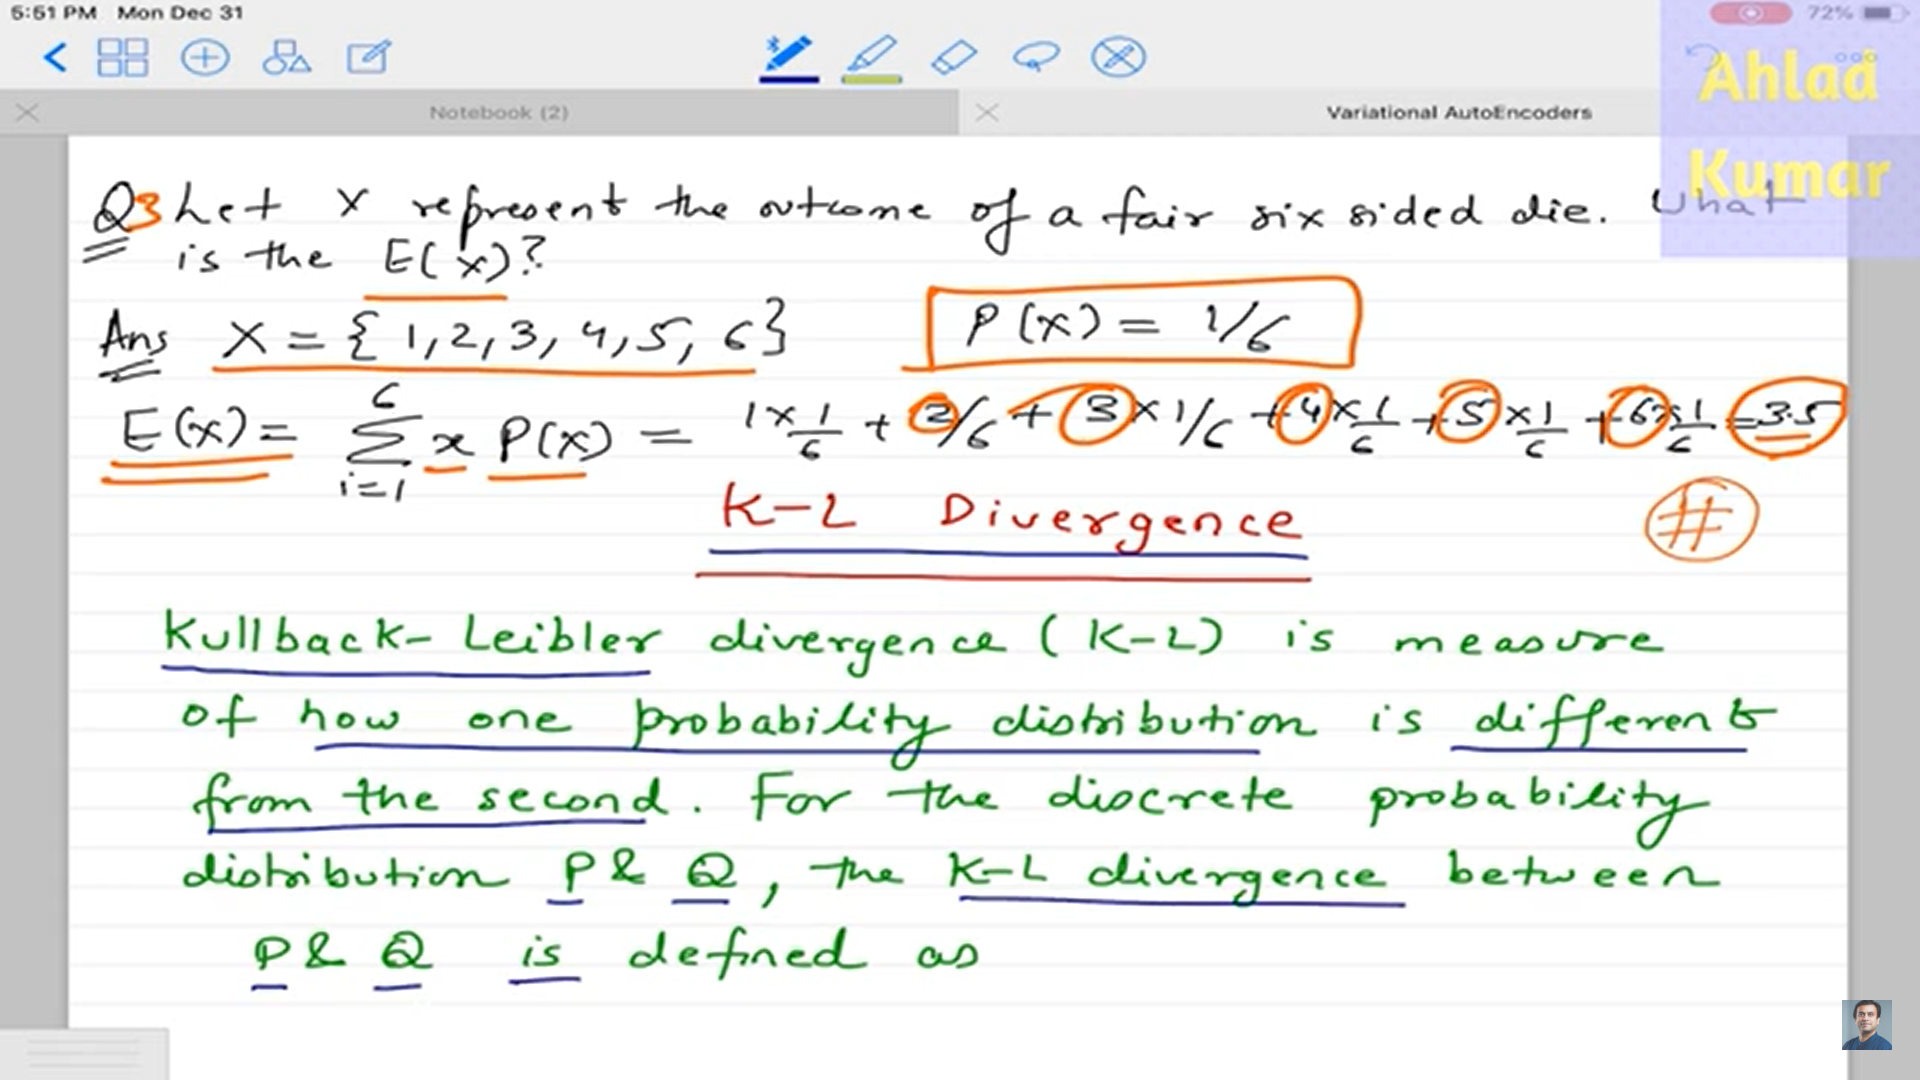 5:51 PM Mon Dec 31
72%
Notebook (2)
Variational AutoEncoders
Ahlad
Kumar
Q3 Let X represent the outcome of a fair six sided die. What
is the E(x)?
Ans X = {1,2,3,4,5,6} P(x) = 1/6
E(x) = 6 Σ i=1 x P(x) = 1×1/6 + 2/6 + 3×1/6 + 4×1/6 + 5×1/6 + 6×1/6 = 3.5
K-L Divergence #
Kullback-Leibler divergence (K-L) is measure
of how one probability distribution is different
from the second. For the discrete probability
distribution P & Q, the K-L divergence between
P & Q is defined as